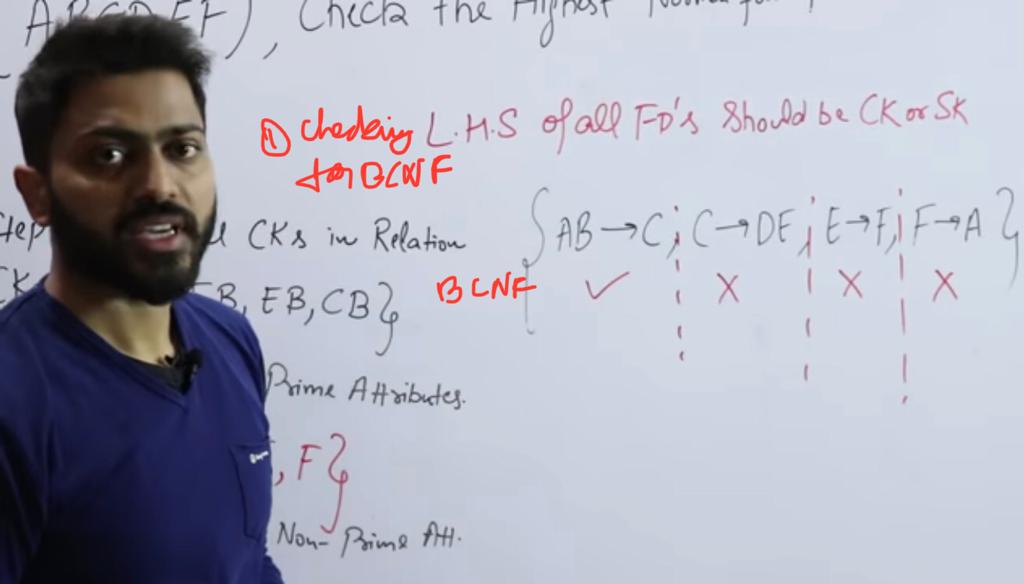 ABCDEF), Check the Highest Normal form?
① Checking L.H.S of all FD's Should be CK or SK
for BCNF
Step CKs in Relation
{AB→C, C→DE, E→F, F→A}
CK FB, EB, CB}
BCNF ✓ X X X
Prime Attributes.
, F}
Non-Prime Att.